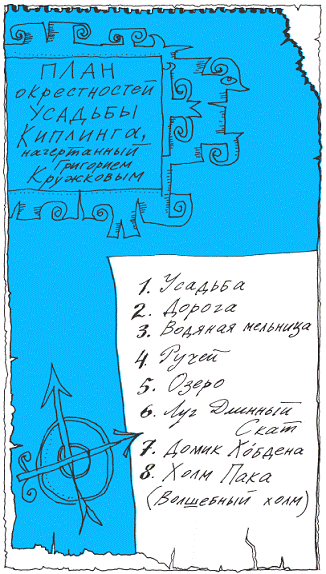 ПЛАН
окрестностей
УСАДЬБЫ
Киплинга,
начертанный
Григорием
Кружковым
1. Усадьба
2. Дорога
3. Водяная мельница
4. Ручей
5. Озеро
6. Луг Длинный
Скат
7. Домик Хобдена
8. Холм Пака
(Волшебный холм)